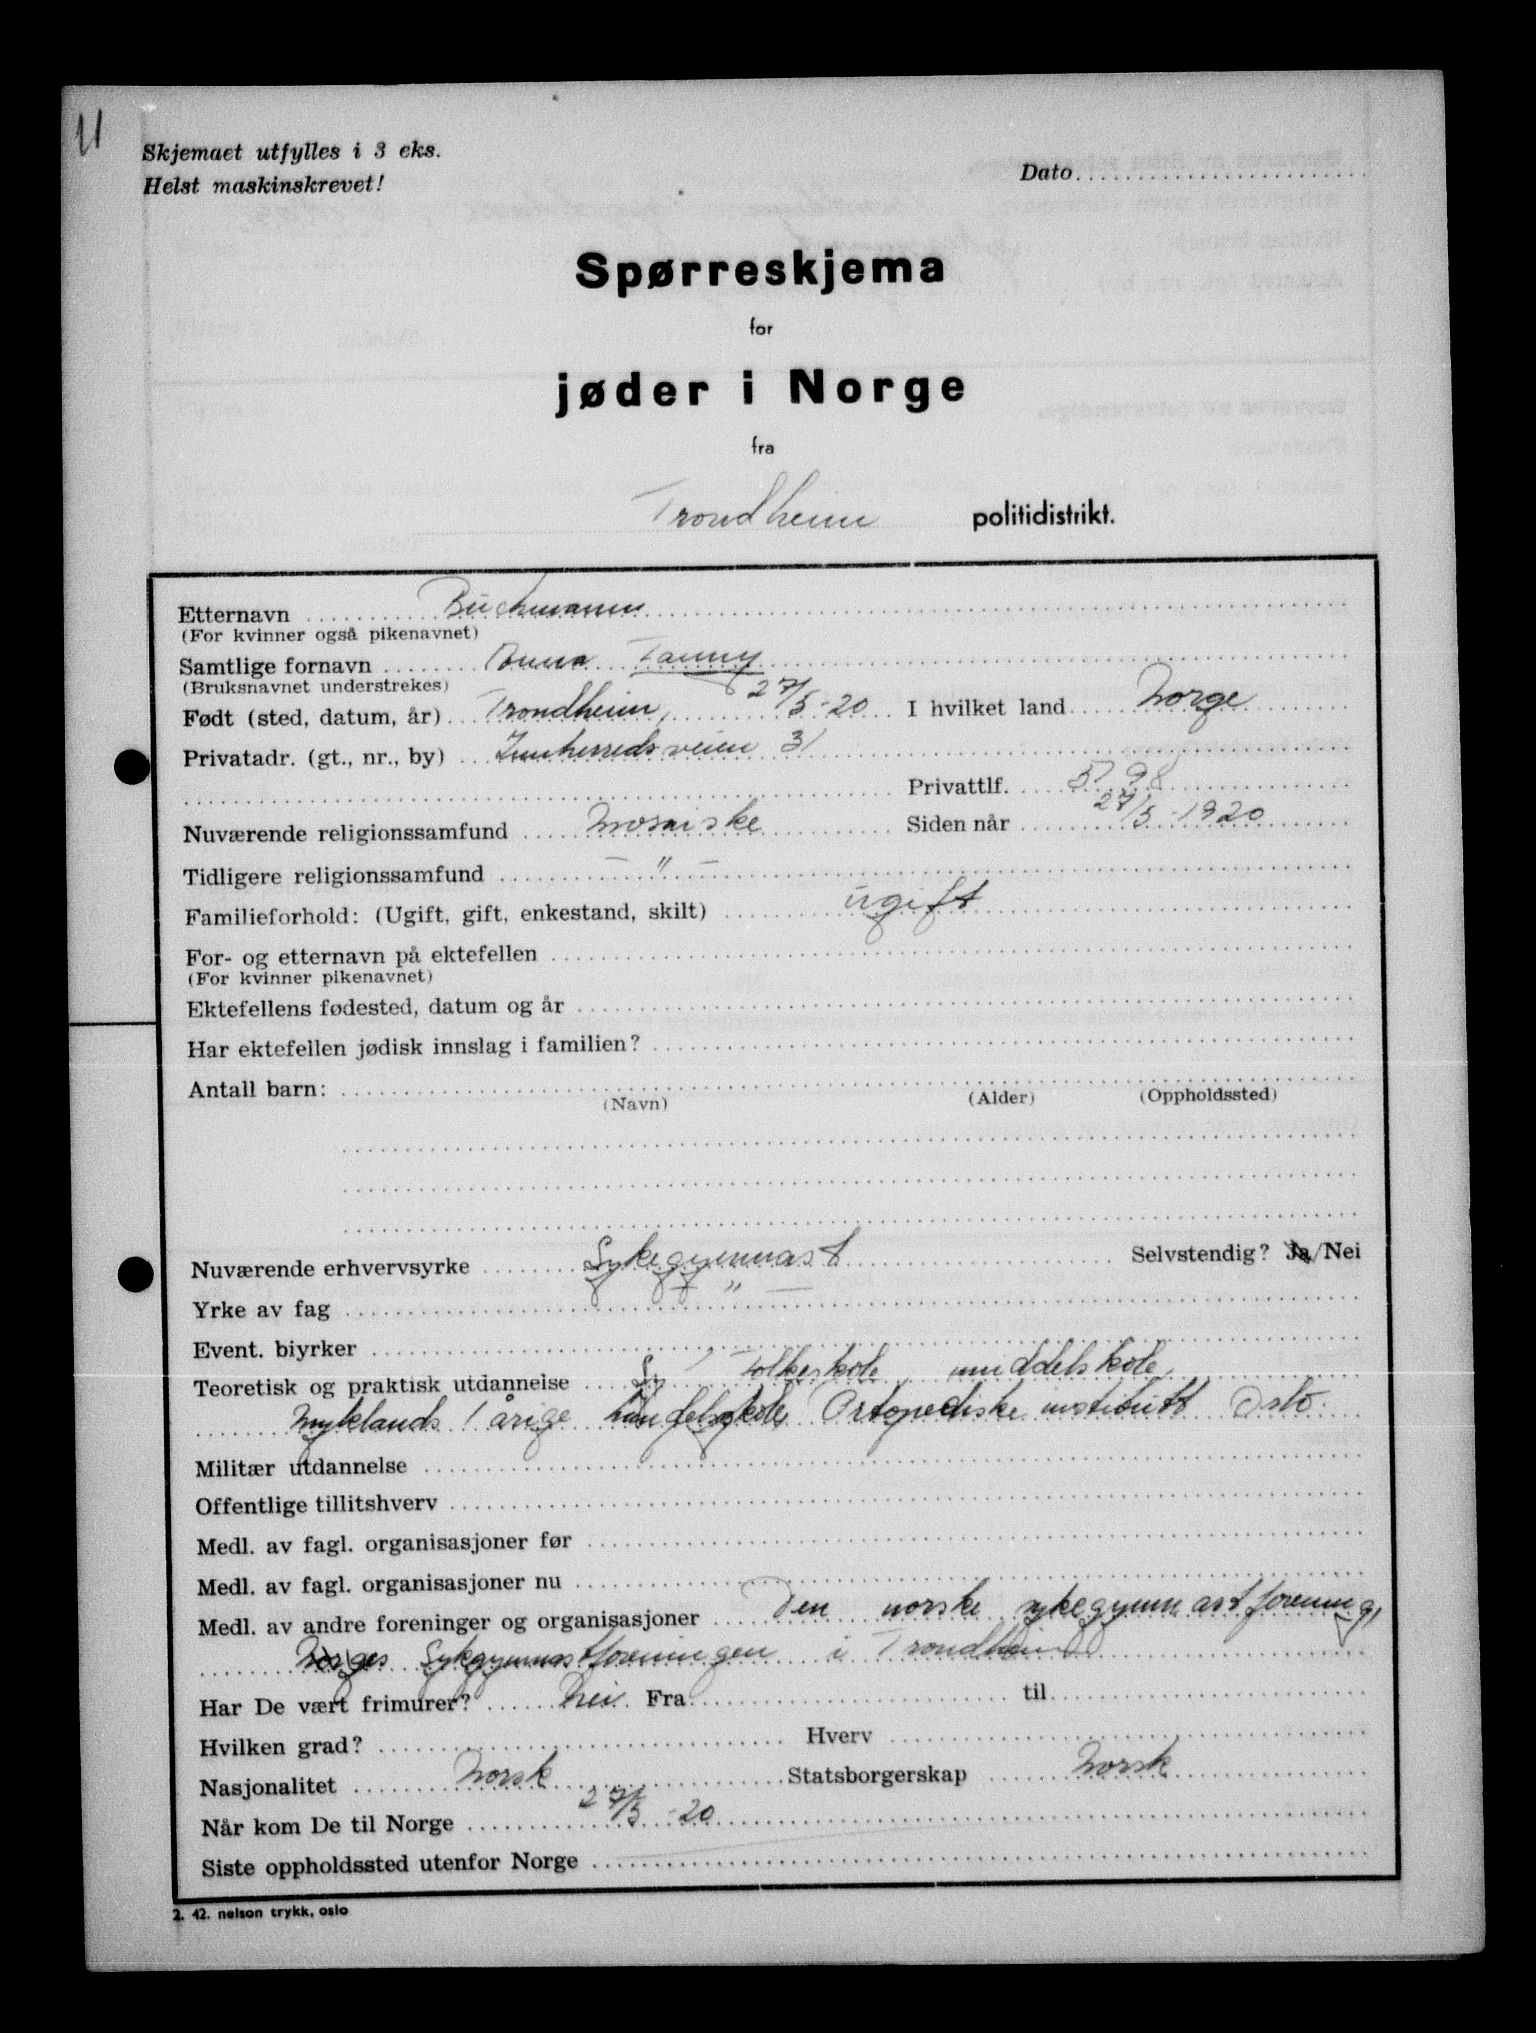 U
Skjemaet utfylles i 3 eks.
Helst maskinskrevet!
Dato
Spørreskjema
for
jøder i Norge
fra
Trondheim politidistrikt.
Etternavn Buchmann
(For kvinner også pikenavnet)
Samtlige fornavn Anna Fanny
(Bruksnavnet understrekes)
Født (sted, datum, år) Trondheim, 27/5-20 I hvilket land Norge
Privatadr. (gt., nr., by) Innherredsveien 31
Privattlf. 5798
Nuværende religionssamfund Mosaiske Siden når 27/5-1920
Tidligere religionssamfund — " —
Familieforhold: (Ugift, gift, enkestand, skilt) ugift
For- og etternavn på ektefellen
(For kvinner pikenavnet)
Ektefellens fødested, datum og år
Har ektefellen jødisk innslag i familien?
Antall barn:
(Navn) (Alder) (Oppholdssted)
Nuværende erhvervsyrke Sykegymnast Selvstendig? Ja/Nei
Yrke av fag — " —
Event. biyrker
Teoretisk og praktisk utdannelse Folkeskole, middelskole,
Myklands 1 årige handelsskole, Ortopediske institutt Oslo.
Militær utdannelse
Offentlige tillitshverv
Medl. av fagl. organisasjoner før
Medl. av fagl. organisasjoner nu
Medl. av andre foreninger og organisasjoner Den norske sykegymnastforening,
Norges Sykgymnastforeningen i Trondheim
Har De vært frimurer? Nei Fra til
Hvilken grad? Hverv
Nasjonalitet Norsk Statsborgerskap Norsk
Når kom De til Norge 27/5-20
Siste oppholdssted utenfor Norge
2. 42. nelson trykk, oslo